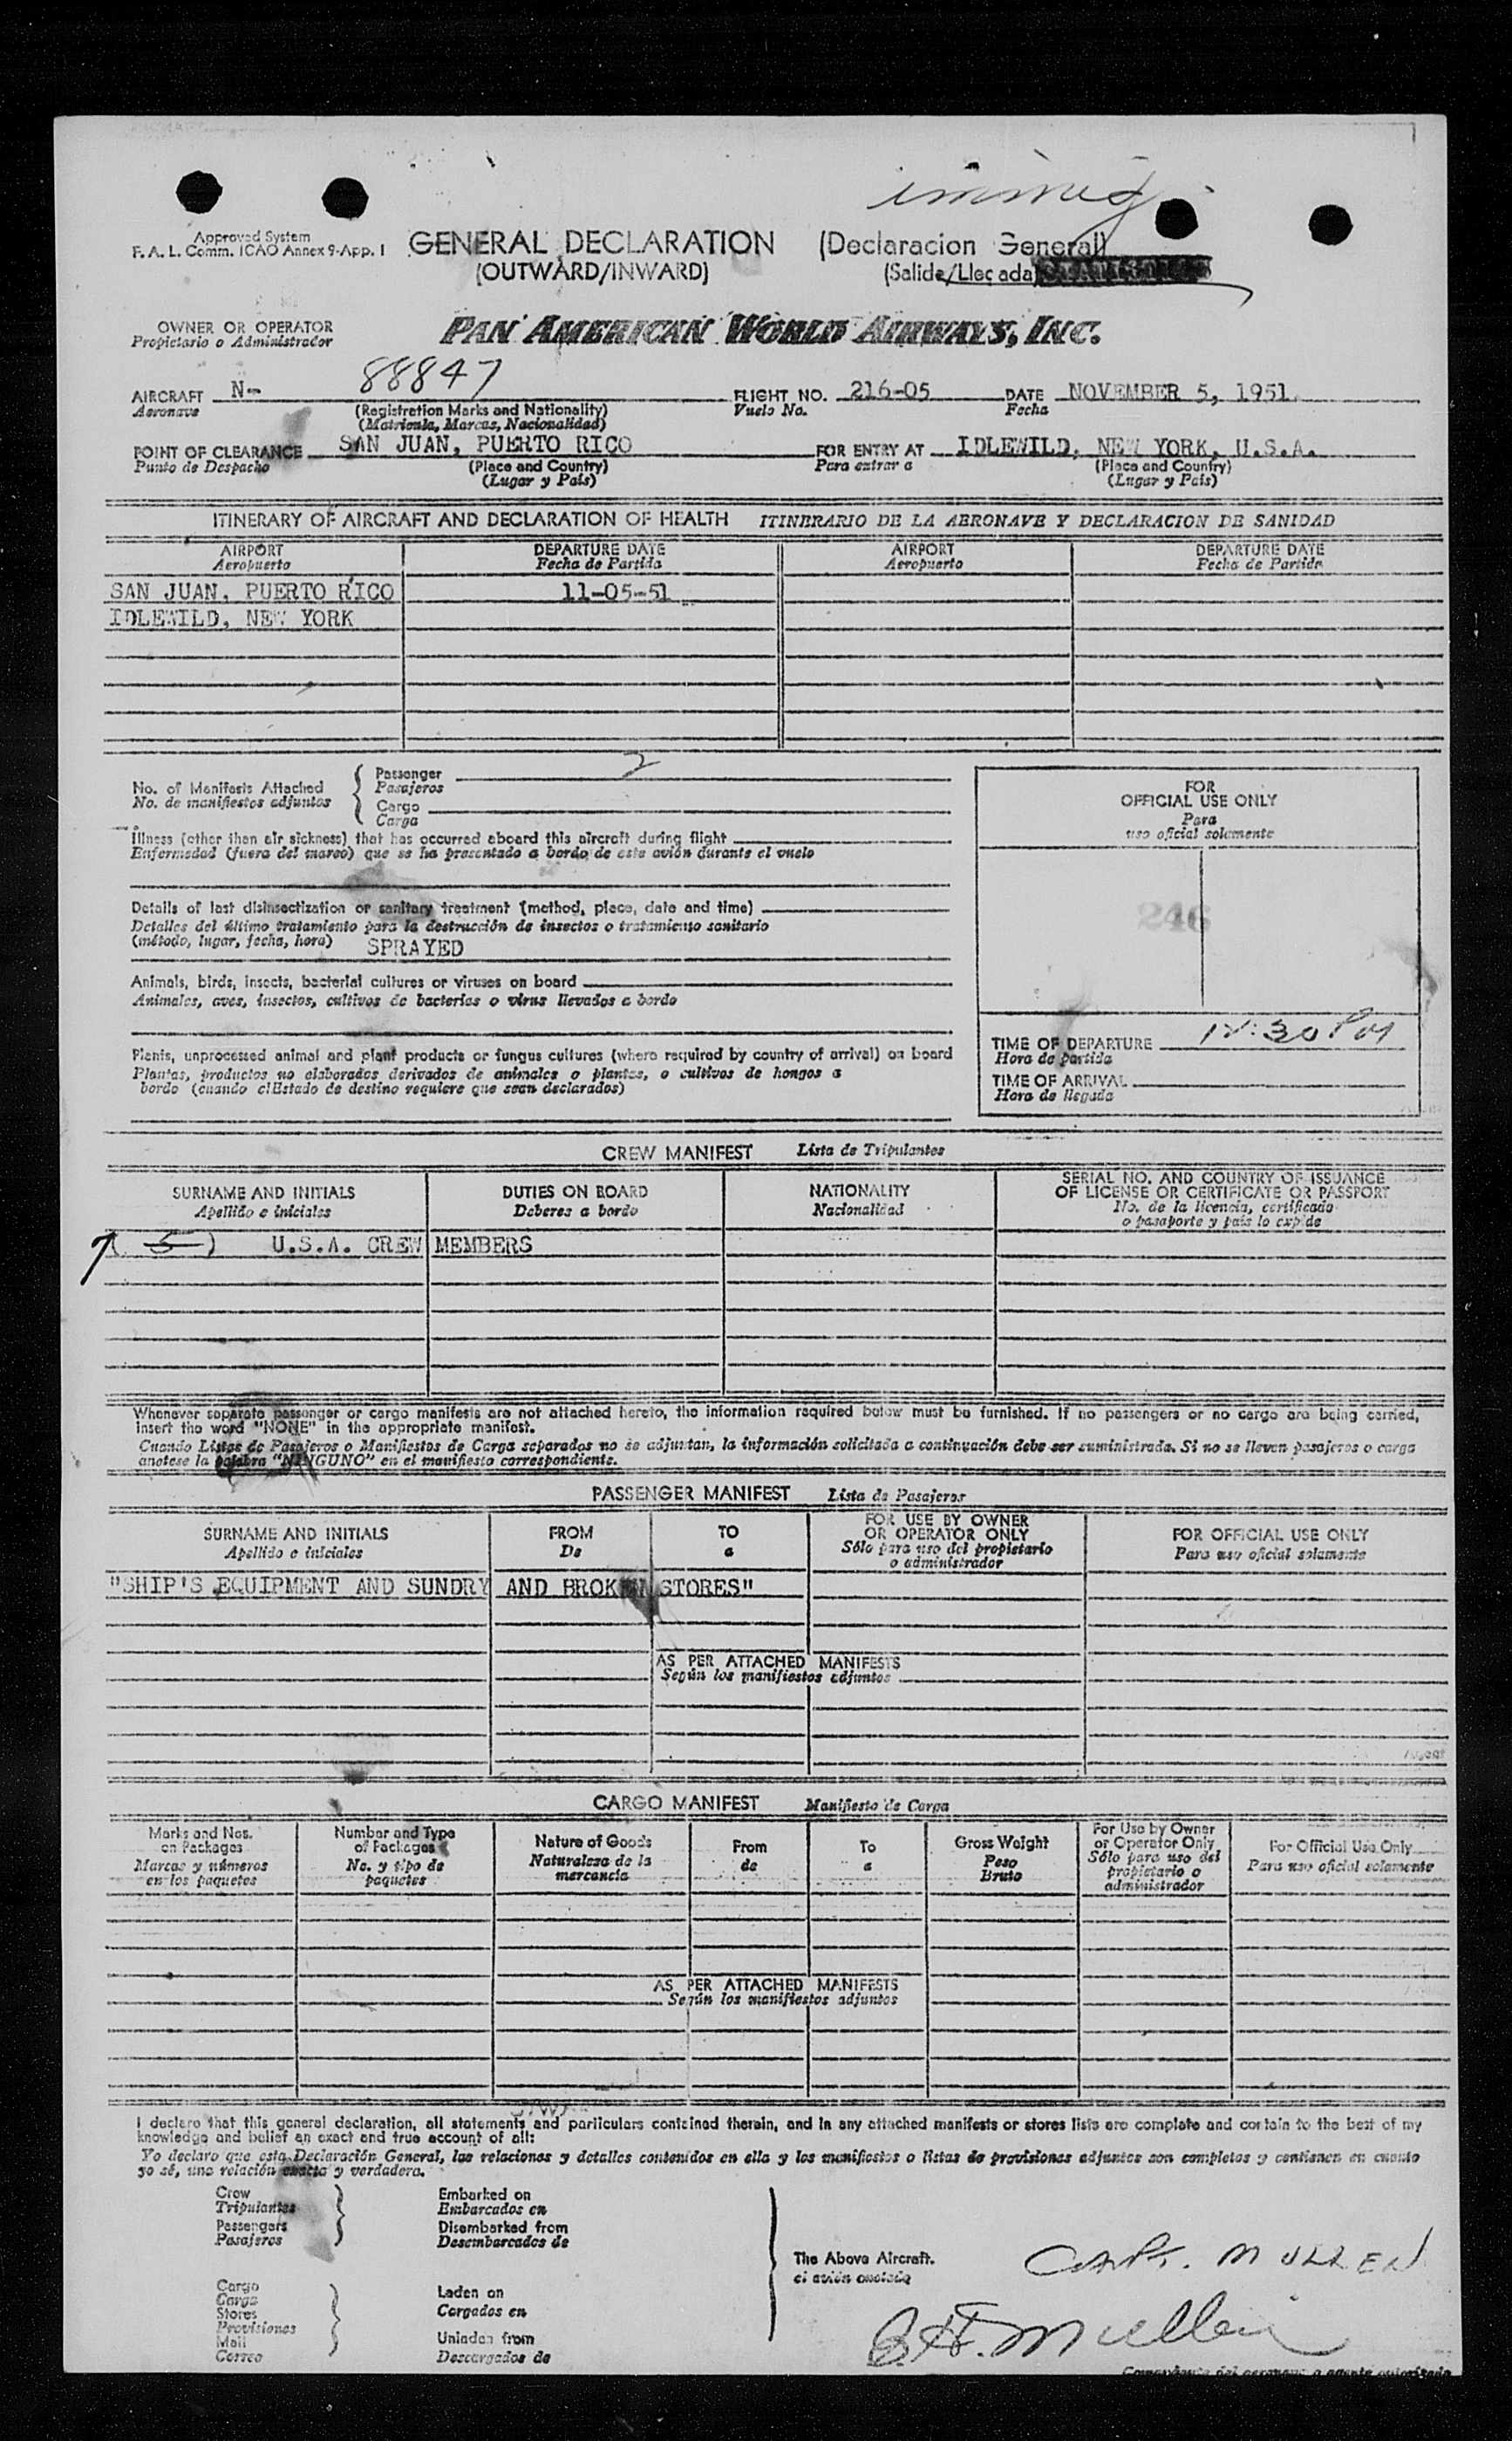 immig
Approved System
F. A. L. Comm. ICAO Annex 9-App. I
GENERAL DECLARATION (Declaracion General)
(OUTWARD/INWARD) (Salida/Llegada)
OWNER OR OPERATOR
Propietario o Administrador
PAN AMERICAN WORLD AIRWAYS, INC.
AIRCRAFT N- 88847 FLIGHT NO. 216-05 DATE NOVEMBER 5, 1951
Aeronave Vuelo No. Fecha
(Registration Marks and Nationality)
(Matricula, Marcas, Nacionalidad)
POINT OF CLEARANCE SAN JUAN, PUERTO RICO FOR ENTRY AT IDLEWILD, NEW YORK, U.S.A.
Punto de Despacho (Place and Country) Para entrar a (Place and Country)
(Lugar y Pais) (Lugar y Pais)
ITINERARY OF AIRCRAFT AND DECLARATION OF HEALTH ITINERARIO DE LA AERONAVE Y DECLARACION DE SANIDAD
AIRPORT DEPARTURE DATE AIRPORT DEPARTURE DATE
Aeropuerto Fecha de Partida Aeropuerto Fecha de Partida
SAN JUAN, PUERTO RICO 11-05-51
IDLEWILD, NEW YORK
No. of Manifests Attached
No. de manifiestos adjuntos
Passenger 2
Pasajeros
Cargo
Carga
Illness (other than air sickness) that has occurred aboard this aircraft during flight
Enfermedad (fuera del mareo) que se ha presentado a bordo de este avión durante el vuelo
Details of last disinsectization or sanitary treatment (method, place, date and time)
Detalles del último tratamiento para la destrucción de insectos o tratamiento sanitario
(método, lugar, fecha, hora) SPRAYED
Animals, birds, insects, bacterial cultures or viruses on board
Animales, aves, insectos, cultivos de bacterias o virus llevados a bordo
Plants, unprocessed animal and plant products or fungus cultures (where required by country of arrival) on board
Plantas, productos no elaborados derivados de animales o plantas, o cultivos de hongos a
bordo (cuando el Estado de destino requiere que sean declarados)
FOR
OFFICIAL USE ONLY
Para
uso oficial solamente
246
TIME OF DEPARTURE 12:30 PM
Hora de partida
TIME OF ARRIVAL
Hora de llegada
CREW MANIFEST Lista de Tripulantes
SURNAME AND INITIALS DUTIES ON BOARD NATIONALITY SERIAL NO. AND COUNTRY OF ISSUANCE
OF LICENSE OR CERTIFICATE OR PASSPORT
Apellido e iniciales Deberes a bordo Nacionalidad No. de la licencia, certificado
o pasaporte y pais lo expide
( 5 ) U.S.A. CREW MEMBERS
Whenever separate passenger or cargo manifests are not attached hereto, the information required below must be furnished. If no passengers or no cargo are being carried,
insert the word "NONE" in the appropriate manifest.
Cuando Listas de Pasajeros o Manifiestos de Carga separados no se adjuntan, la información solicitada a continuación debe ser suministrada. Si no se llevan pasajeros o carga
anotese la palabra "NINGUNO" en el manifiesto correspondiente.
PASSENGER MANIFEST Lista de Pasajeros
SURNAME AND INITIALS FROM TO FOR USE BY OWNER
OR OPERATOR ONLY FOR OFFICIAL USE ONLY
Apellido e iniciales De a Sólo para uso del propietario
o administrador Para uso oficial solamente
"SHIP'S EQUIPMENT AND SUNDRY AND BROKEN STORES"
AS PER ATTACHED MANIFESTS
Según los manifiestos adjuntos
CARGO MANIFEST Manifiesto de Carga
Marks and Nos.
on Packages
Marcas y números
en los paquetes
Number and Type
of Packages
No. y tipo de
paquetes
Nature of Goods
Naturaleza de la
mercancia
From
de
To
a
Gross Weight
Peso
Bruto
For Use by Owner
or Operator Only
Sólo para uso del
propietario o
administrador
For Official Use Only
Para uso oficial solamente
AS PER ATTACHED MANIFESTS
Según los manifiestos adjuntos
I declare that this general declaration, all statements and particulars contained therein, and in any attached manifests or stores lists are complete and contain to the best of my
knowledge and belief an exact and true account of all:
Yo declaro que esta Declaración General, las relaciones y detalles contenidos en ella y los manifiestos o listas de provisiones adjuntos son completos y contienen en cuanto
yo sé, una relación exacta y verdadera.
Crew
Tripulantes
Passengers
Pasajeros
Embarked on
Embarcados en
Disembarked from
Desembarcados de
Cargo
Carga
Stores
Provisiones
Mail
Correo
Laden on
Cargados en
Unladen from
Descargados de
The Above Aircraft.
el avión anotado
CAPT. MULLEN
Mullen